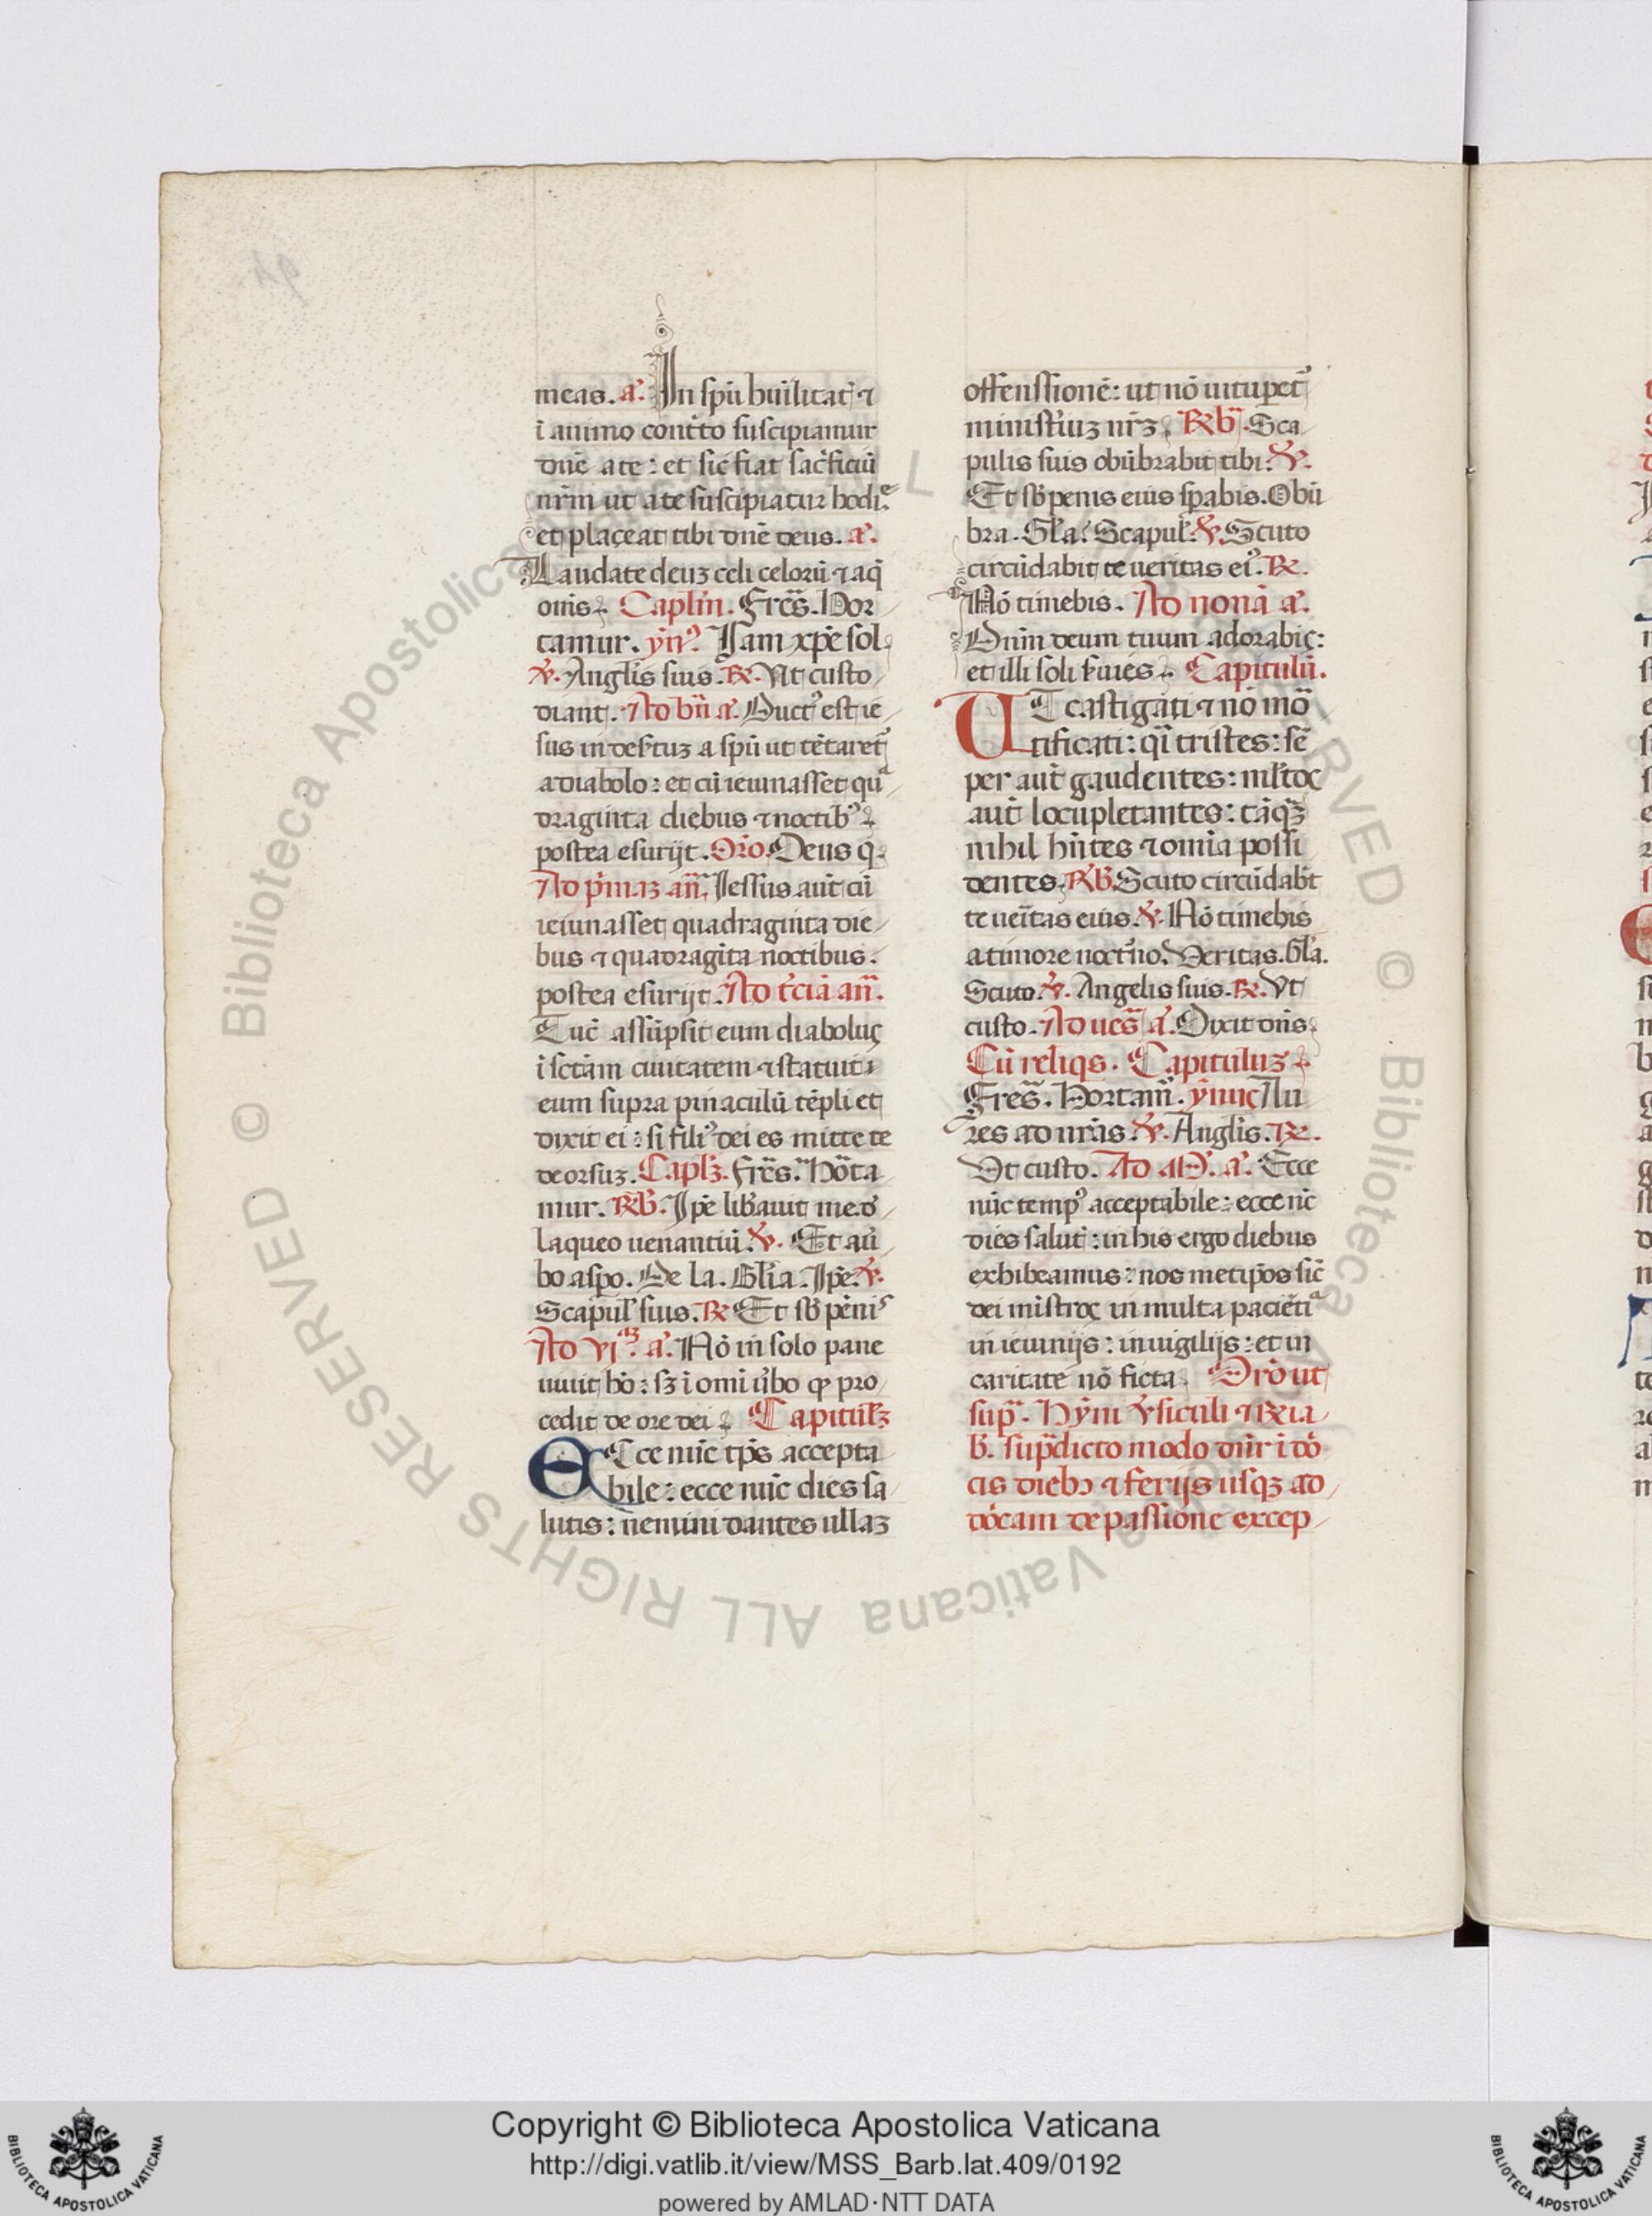 meas. a. In spū humilitat⁊ ⁊
ī animo contͥto suscipiamur
dn̄e a te: et sic fiat sacͥficiū
nr̄m ut a te suscipiatur hodie
et placeat tibi dn̄e deus. a.
Laudate deuʒ celi celorū ⁊ aq̄
om̄s. Caplm̄. Frēs. Hor
tamur. ym̄. Iam xp̄e sol
℣. Angl̄is suis. ℞. Ut custo
diant. Ad bn̄ a. Duct᷒ est ie
sus in desertuʒ a spū ut tētaret᷒
a diabolo: et cū ieiunasset qua
draginta diebus ⁊ noctib᷒
postea esurijt. Orō. Deus q̄
Ad pͥmaʒ an̄. Iessus aut̄ cū
ieiunasset quadraginta die
bus ⁊ quadragīta noctibus.
postea esurijt. Ad tc̄iā an̄.
Tūc assūpsit eum diabolus
ī sctām ciuitatem ⁊ statuit
eum supra pinaculū tēpli et
dixit ei: si fili᷒ dei es mitte te
deorsuʒ. Capl̄ʒ. Frēs. Hōta
mur. ℞b̄. Ip̄e lib̄auit me. d
laqueo uenantiū. ℣. Et a ū
bo asp̄o. De la. Gl̄ia. Ip̄e. ℣.
Scapul̄ suis. ℞ Et sb̄ pēnis
Ad vj. a. Nō in solo pane
uiuit hō: sʒ ī omī ūbo qđ pro
cedit de ore dei. Capitul̄ʒ
ECce nūc tp̄s accepta
bile: ecce nūc dies sa
lutis: nemini dantes ullaʒ
offenssionē: ut nō uitupet᷒
minist̄iuʒ nr̄ʒ. ℞b̄. Sca
pulis suis obūbrabit tibi. ℣.
Et sb̄ penis eius sp̄abis. Obū
bra. Gl̄a. Scapul̄. ℣. Scuto
circūdabit te ueritas ei᷒. ℞.
Nō timebis. Ad nonā a.
Dn̄m deum tuum adorabis:
et illi soli s̄uies. Capitulū.
UT castigati ⁊ nō mo
tificati: qͥ tristes: sē
per aut̄ gaudentes: ml̄tos
aut̄ locupletantes: tāqʒ
nihil hn̄tes ⁊ omīa possi
dentes. ℞b̄. Scuto circūdab̄t
te uēitas eius. ℣. Nō timebis
a timore noct̄no. Veritas. Gl̄a.
Scuto. ℣. Angelis suis. ℞. Vt
custo. Ad ues̄ a. Dixit dn̄s
Cū reliqs. Capituluʒ
Frēs. Hortam̄. ym̄us Au
res ad nr̄as. ℣. Angl̄is. ℞.
Vt custo. Ad M. a. Ecce
nūc temp᷒ acceptabile: ecce nc̄
dies salut̄: in his ergo diebus
exhibeamus: nos metip̄os sic̄
dei mīstros in multa paciētia
in ieiunijs: in uigilijs: et in
caritate nō ficta. Orō ut
sup̄. Hym̄i ℣siculi ⁊ ℞ia
b̄. sup̄dicto modo dn̄r ī dō
cis dieb᷒ ⁊ ferijs usqʒ ad
dōcam de passione excep
Copyright © Biblioteca Apostolica Vaticana
http://digi.vatlib.it/view/MSS_Barb.lat.409/0192
powered by AMLAD·NTT DATA
BIBLIOTECA APOSTOLICA VATICANA
BIBLIOTECA APOSTOLICA VATICANA
© Biblioteca Apostolica Vaticana ALL RIGHTS RESERVED